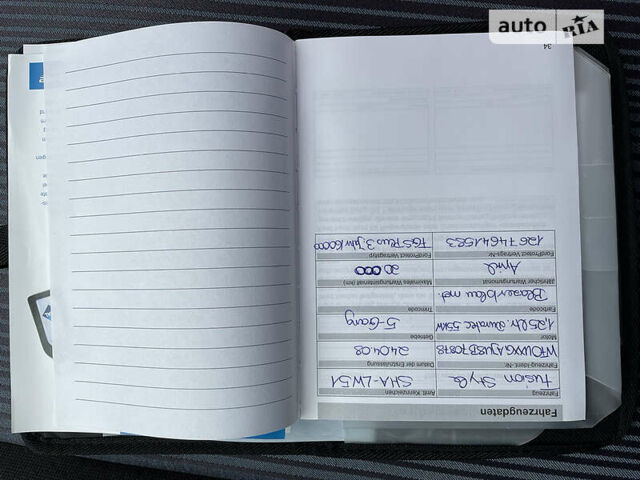 auto RIA
34
Fahrzeugdaten
Fahrzeug
Fusion Style
Amtl. Kennzeichen
SHA-LW51
Fahrzeug-Ident.-Nr.
Datum der Erstzulassung
24.04.08
Motor
1,25 Ltr. Duratec 55KW
Getriebe
5-Gang
Farbcode
Blazerblau met.
Trimcode
Jährlicher Wartungsmonat
April
Maximales Wartungsintervall (km)
20 000
FordProtect Vertrags-Nr.
FordProtect Vertragstyp
3 Jahr 60000